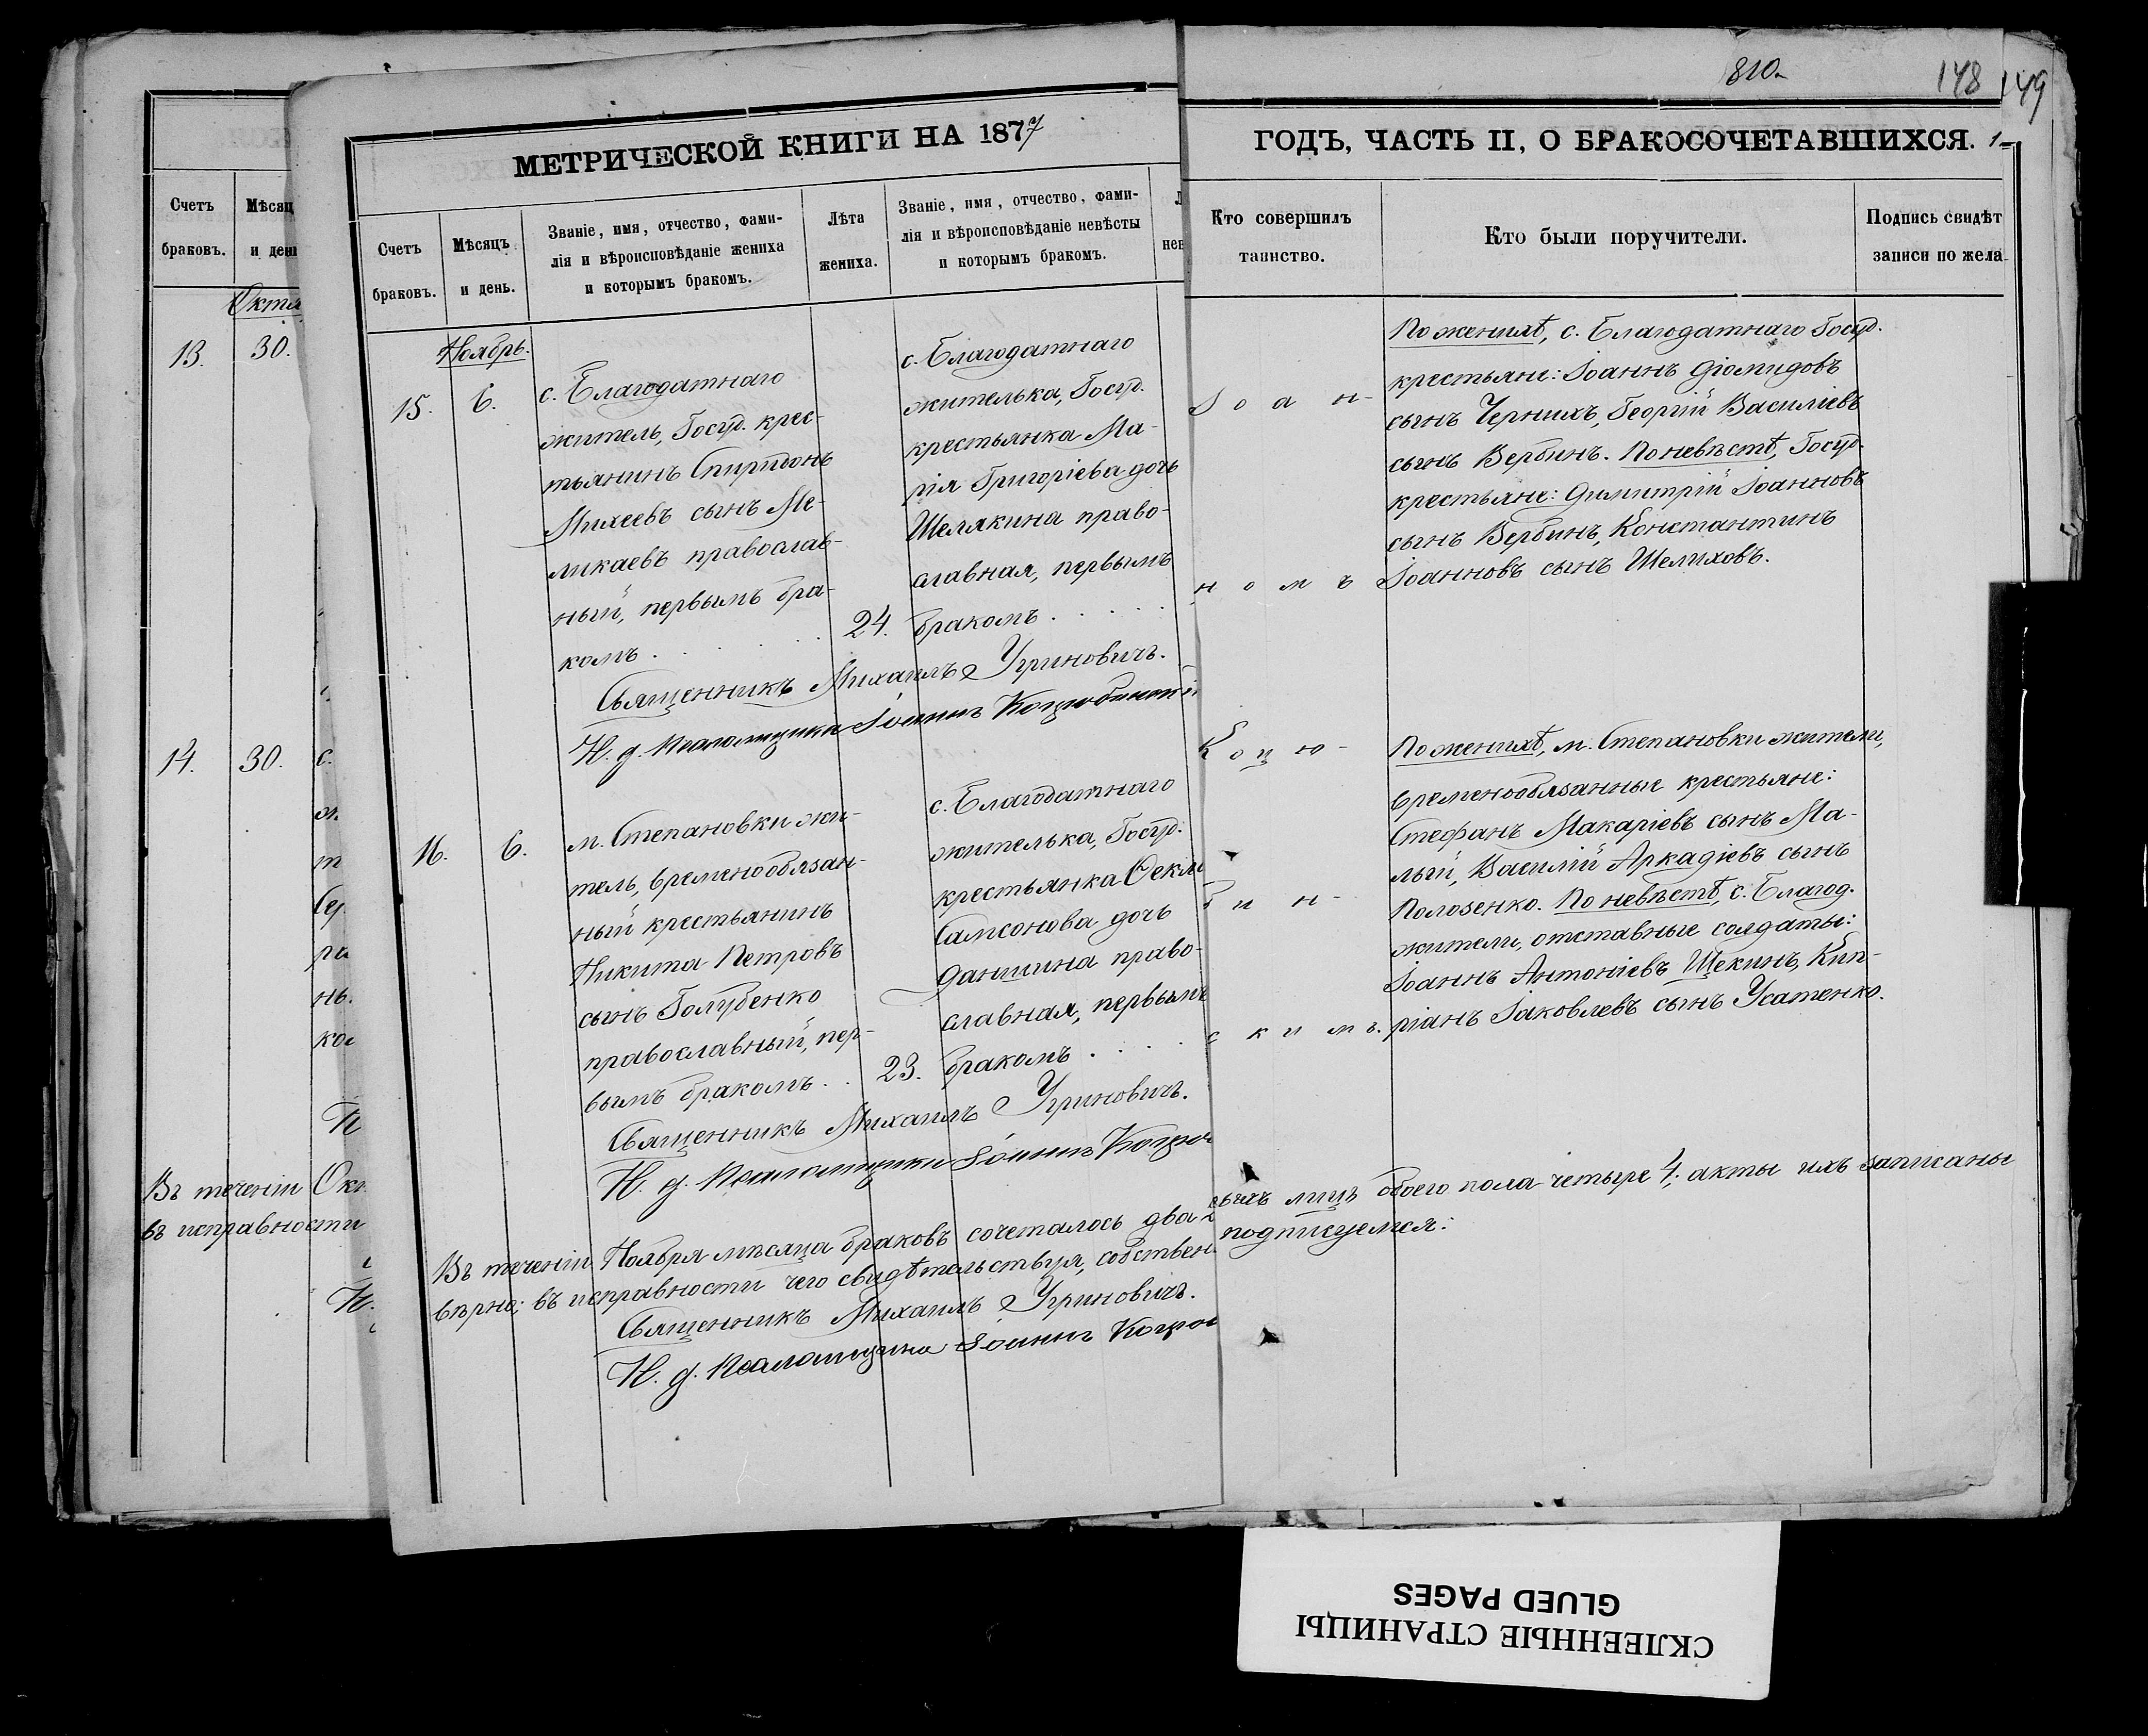 810.
148
149
МЕТРИЧЕСКОЙ КНИГИ НА 1877
ГОДЪ, ЧАСТЬ II, О БРАКОСОЧЕТАВШИХСЯ.
Счетъ
браковъ.
Мѣсяц
и ден
Октя
13. 30.
14. 30.
с.
Сер
ра
нь.
ко
Въ теченіи Ок
въ исправности
Счетъ
браковъ.
Мѣсяцъ
и день.
Званіе, имя, отчество, фами-
лія и вѣроисповѣданіе жениха
и которымъ бракомъ.
Лѣта
жениха.
Званіе, имя, отчество, фами-
лія и вѣроисповѣданіе невѣсты
и которымъ бракомъ.
Л
нев
Кто совершилъ
таинство.
Кто были поручители.
Подпись свидѣт
записи по жела
Ноябрь.
15. 6.
с. Благодатнаго
житель, Госуд. крес-
тьянинъ Спиридонъ
Михеевъ сынъ Ме-
ликаевъ православ-
ный, первымъ бра-
комъ . . . . . 24.
с. Благодатнаго
жителька, Госуд.
крестьянка Ма-
рія Григоріева дочь
Шелякина право-
славная, первымъ
бракомъ . . . . .
Священникъ Михаилъ Угриновичъ.
И. д. Псаломщика Іоаннъ Коцюбинскі
І о а н -
н о м ъ
По женихѣ, с. Благодатнаго Госуд.
крестьяне: Іоаннъ Діомидовъ
сынъ Черныхъ, Георгій Василіевъ
сынъ Вербинъ. По невѣстѣ, Госуд.
крестьяне: Димитрій Іоанновъ
сынъ Вербинъ, Константинъ
Іоанновъ сынъ Шелиховъ.
16. 6.
м. Степановки жи-
тель, временообязан-
ный крестьянинъ
Никита Петровъ
сынъ Голубенко
православный, пер-
вымъ бракомъ . . 23.
с. Благодатнаго
жителька, Госуд.
крестьянка Ѳекла
Самсонова дочь
Даншина право-
славная, первымъ
бракомъ . . . .
Священникъ Михаилъ Угриновичъ.
И. д. Псаломщика Іоаннъ Коцю
К о ц ю -
б и н -
с к и м ъ.
По женихѣ, м. Степановки жители,
временообязанные крестьяне:
Стефанъ Макаріевъ сынъ Ма-
лый, Василій Аркадіевъ сынъ
Полозенко. По невѣстѣ, с. Благод.
жители, отставные солдаты:
Іоаннъ Антоніевъ Щекинъ, Кип-
ріанъ Іаковлевъ сынъ Усатенко.
Въ теченіи Ноября мѣсяца браковъ сочеталось два 2
выхъ лицъ обоего пола четыре 4; акты ихъ записаны
вѣрно; въ исправности чего свидѣтельствуя, собствен
подписуемся:
Священникъ Михаилъ Угриновичъ.
И. д. Псаломщика Іоаннъ Коцю
СКЛЕЕННЫЕ СТРАНИЦЫ
GLUED PAGES